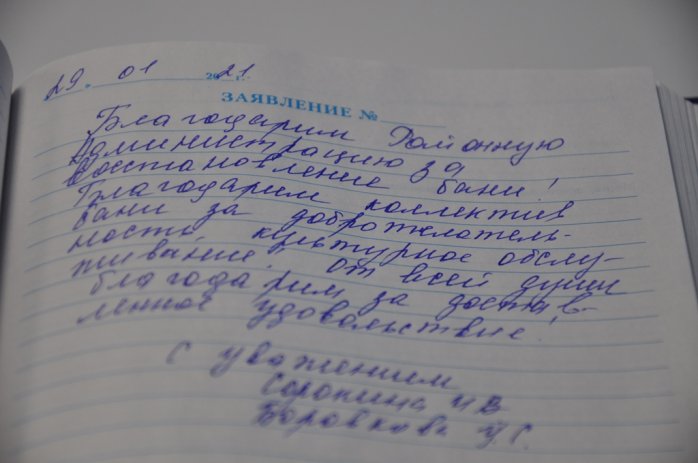 29. 01 2021 г.
ЗАЯВЛЕНИЕ №
Благодарим Районную
Администрацию за
восстановление бани!
Благодарим коллектив
бани за доброжелатель-
ность, культурное обслу-
живание. От всей души
благодарим за достав-
ленное удовольствие!
С уважением
Сорокина И В